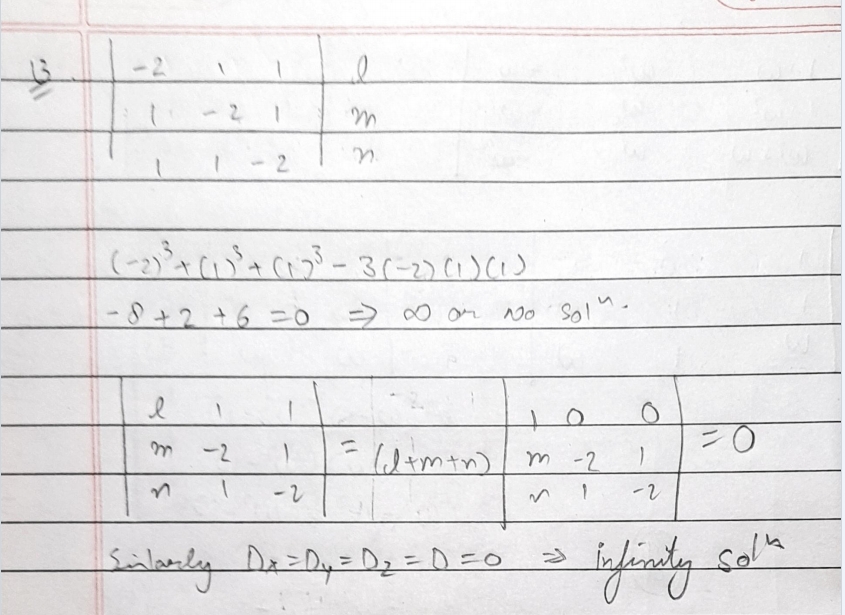 13. | -2 1 1 | l
| 1 -2 1 | m
| 1 1 -2 | n
(-2)³ + (1)³ + (1)³ - 3(-2)(1)(1)
-8 + 2 + 6 = 0 ⇒ ∞ or no solⁿ.
| l 1 1 | | 1 0 0 |
| m -2 1 | = (l+m+n) | m -2 1 | = 0
| n 1 -2 | | n 1 -2 |
Similarly Dx = Dy = Dz = D = 0 ⇒ infinity solⁿ